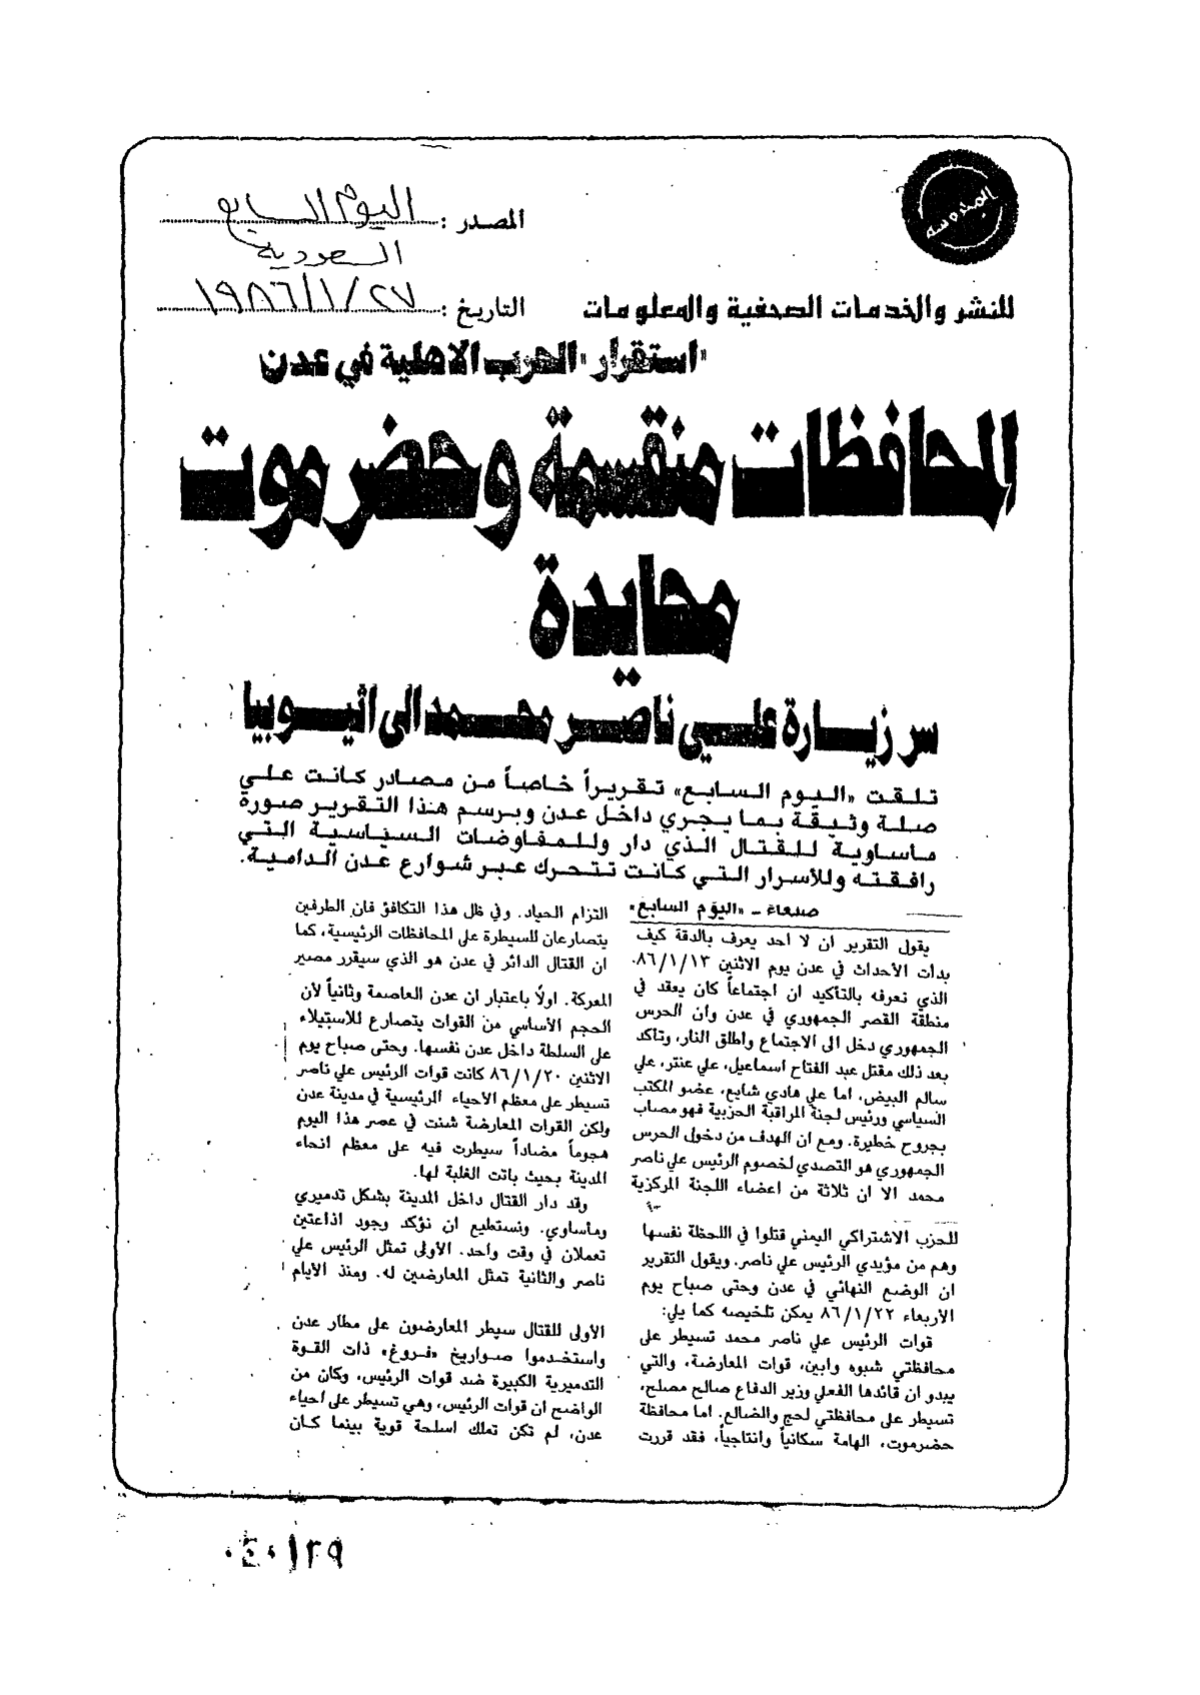 المحروسة
المصدر : اليوم السابع
السعودية
للنشر والخدمات الصحفية والمعلومات
التاريخ : ١٩٨٦/١/٢٧
"استقرار" الحرب الاهلية في عدن
المحافظات منقسمة وحضرموت
محايدة
سر زيارة علي ناصر محمد الى اثيوبيا
تلقت «اليوم السابع» تقريراً خاصاً من مصادر كانت على
صلة وثيقة بما يجري داخل عدن ويرسم هذا التقرير صورة
مأساوية للقتال الذي دار وللمفاوضات السياسية التي
رافقته وللأسرار التي كانت تتحرك عبر شوارع عدن الدامية.
صنعاء - «اليوم السابع»
يقول التقرير ان لا أحد يعرف بالدقة كيف
بدأت الأحداث في عدن يوم الاثنين ٨٦/١/١٣.
الذي نعرفه بالتأكيد ان اجتماعاً كان يعقد في
منطقة القصر الجمهوري في عدن وأن الحرس
الجمهوري دخل الى الاجتماع واطلق النار، وتأكد
بعد ذلك مقتل عبد الفتاح اسماعيل، علي عنتر، علي
سالم البيض، اما علي هادي شايع، عضو المكتب
السياسي ورئيس لجنة المراقبة الحزبية فهو مصاب
بجروح خطيرة. ومع ان الهدف من دخول الحرس
الجمهوري هو التصدي لخصوم الرئيس علي ناصر
محمد الا ان ثلاثة من اعضاء اللجنة المركزية
للحزب الاشتراكي اليمني قتلوا في اللحظة نفسها
وهم من مؤيدي الرئيس علي ناصر. ويقول التقرير
ان الوضع النهائي في عدن وحتى صباح يوم
الأربعاء ٨٦/١/٢٢ يمكن تلخيصه كما يلي:
قوات الرئيس علي ناصر محمد تسيطر على
محافظتي شبوه وابين، قوات المعارضة، والتي
يبدو ان قائدها الفعلي وزير الدفاع صالح مصلح،
تسيطر على محافظتي لحج والضالع. اما محافظة
حضرموت، الهامة سكانياً وانتاجياً، فقد قررت
التزام الحياد. وفي ظل هذا التكافؤ فان الطرفين
يتصارعان للسيطرة على المحافظات الرئيسية، كما
ان القتال الدائر في عدن هو الذي سيقرر مصير
المعركة. اولاً باعتبار ان عدن العاصمة وثانياً لأن
الحجم الأساسي من القوات يتصارع للاستيلاء
على السلطة داخل عدن نفسها. وحتى صباح يوم
الاثنين ٨٦/١/٢٠ كانت قوات الرئيس علي ناصر
تسيطر على معظم الأحياء الرئيسية في مدينة عدن
ولكن القوات المعارضة شنت في عصر هذا اليوم
هجوماً مضاداً سيطرت فيه على معظم انحاء
المدينة بحيث باتت الغلبة لها.
وقد دار القتال داخل المدينة بشكل تدميري
ومأساوي. ونستطيع ان نؤكد وجود اذاعتين
تعملان في وقت واحد. الأولى تمثل الرئيس علي
ناصر والثانية تمثل المعارضين له. ومنذ الأيام
الأولى للقتال سيطر المعارضون على مطار عدن
واستخدموا صواريخ «فروغ» ذات القوة
التدميرية الكبيرة ضد قوات الرئيس، وكان من
الواضح ان قوات الرئيس، وهي تسيطر على احياء
عدن، لم تكن تملك اسلحة قوية بينما كان
٠٤٠١٢٩